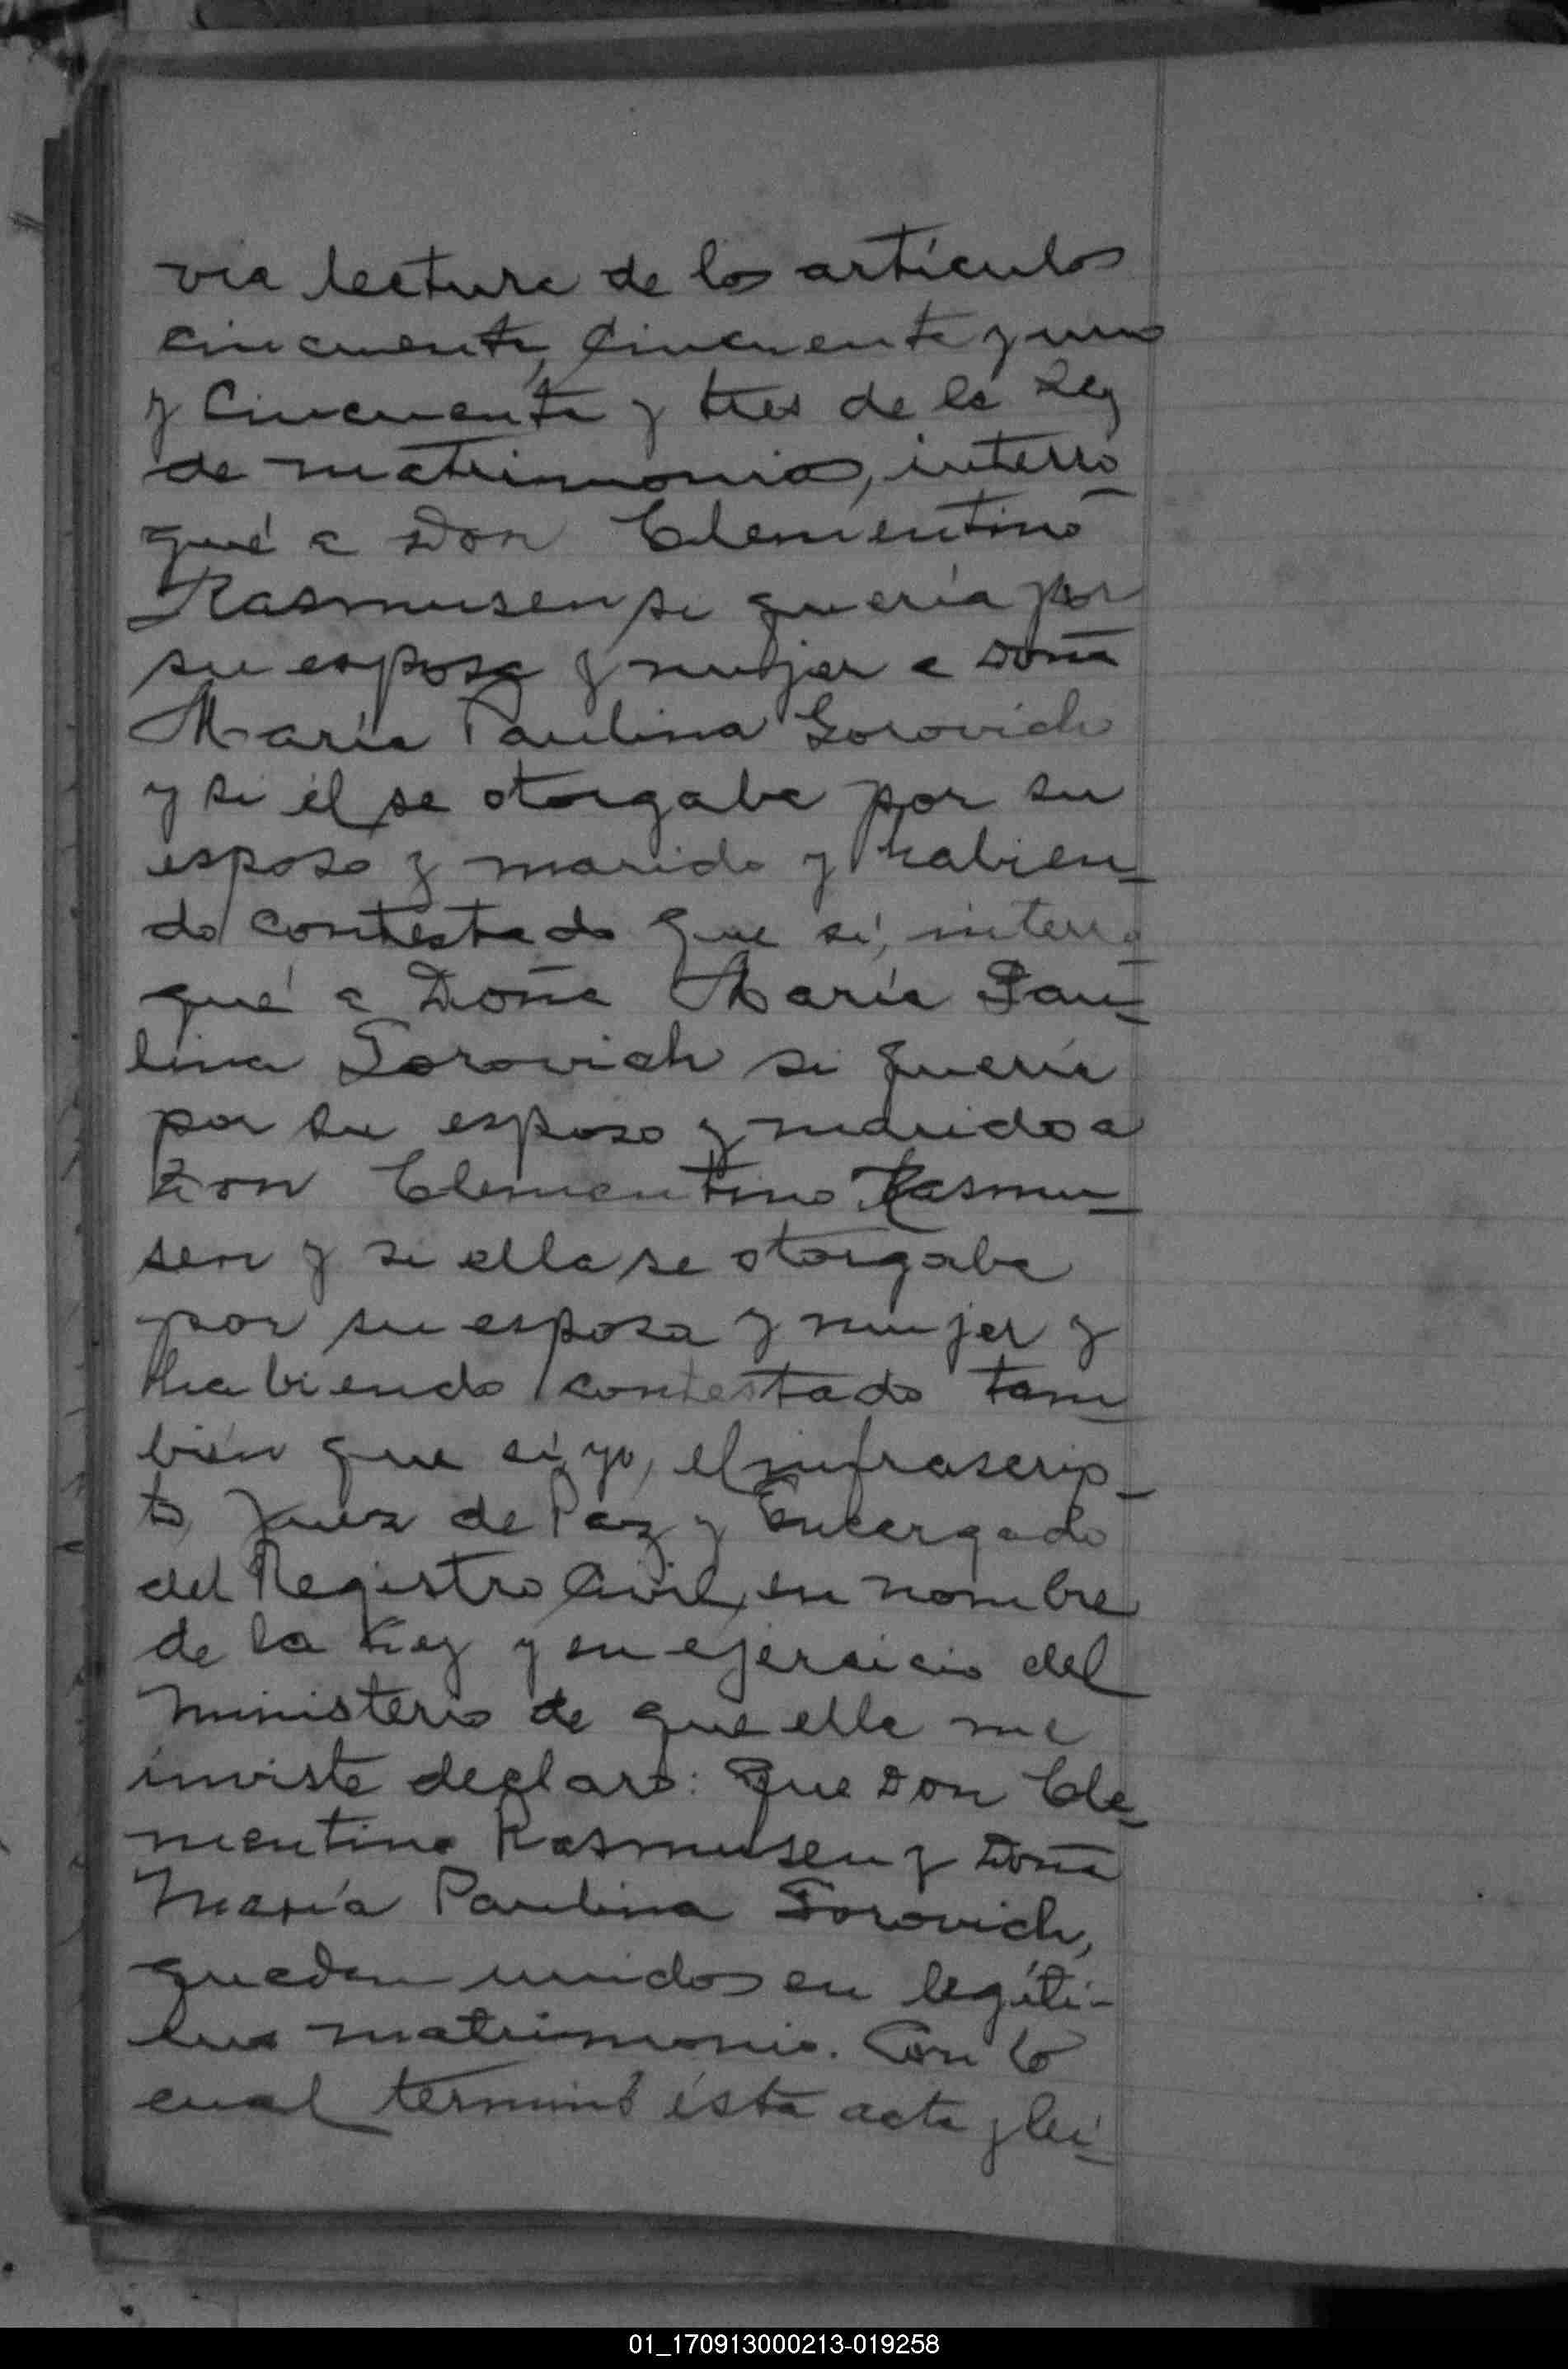 via lectura de los artículos
cincuenta, cincuenta y uno
y cincuenta y tres de la Ley
de matrimonio, interro
gué a Don Clementino
Rasmusen si quería por
su esposa y mujer a Doña
María Paulina Gorovich
y si él se otorgaba por su
esposo y marido y habien-
do contestado que sí, interro
gué a Doña María Pau-
lina Gorovich si quería
por su esposo y marido a
Don Clementino Rasmu-
sen y si ella se otorgaba
por su esposa y mujer y
habiendo contestado tam-
bién que sí yo, el infrascrip-
to, Juez de Paz y Encargado
del Registro Civil, en nombre
de la Ley y en ejersicio del
ministerio de que ella me
inviste declaro: Que Don Cle-
mentino Rasmusen y Doña
María Paulina Gorovich,
quedan unidos en legíti-
mo matrimonio. Con lo
cual terminó ésta acta y leí-
01_170913000213-019258